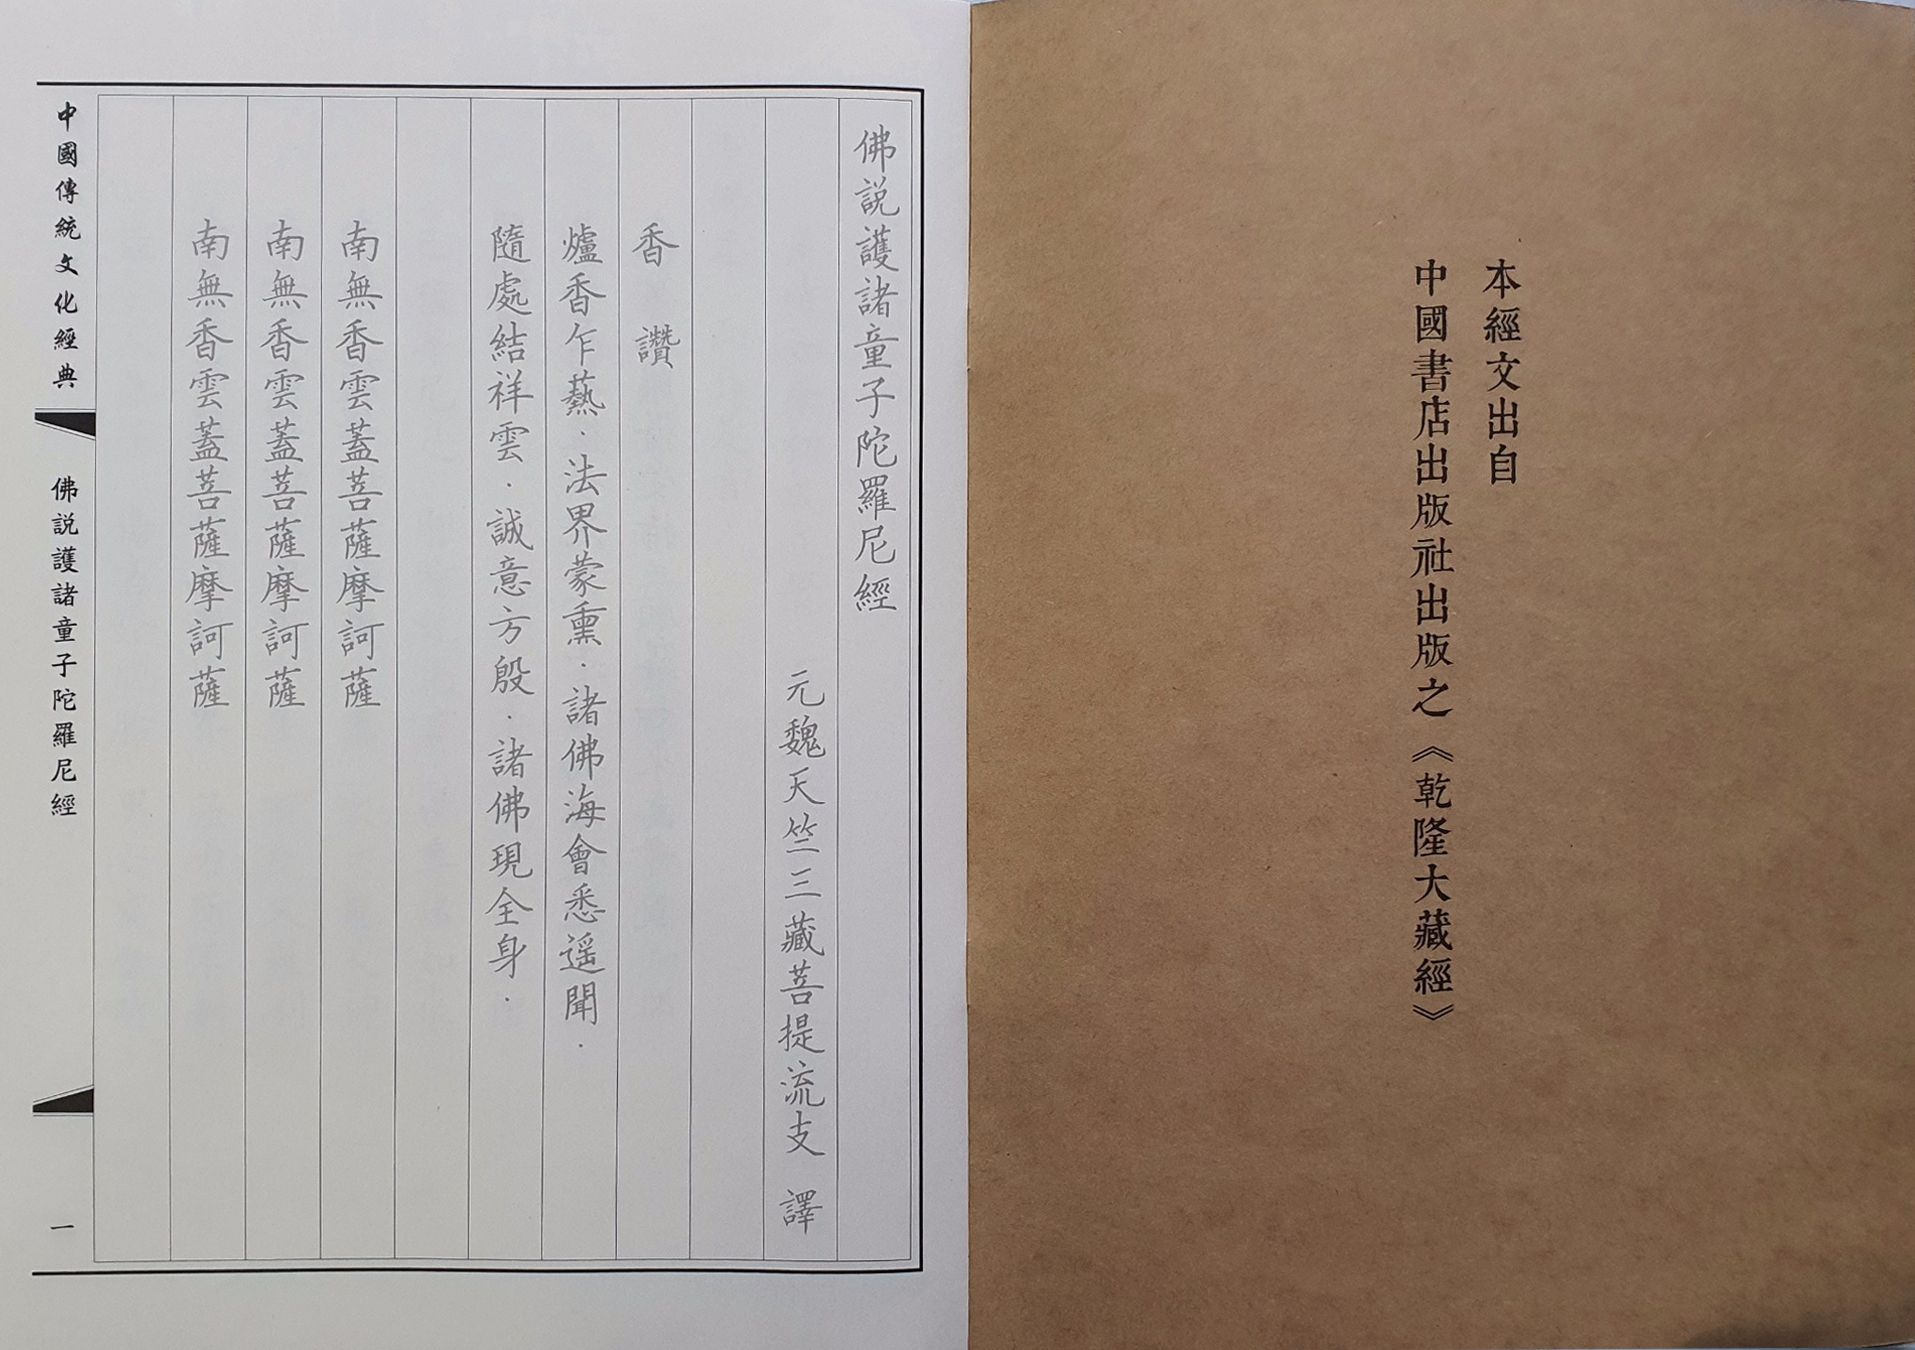 本經文出自
中國書店出版社出版之《乾隆大藏經》
佛説護諸童子陀羅尼經
元魏天竺三藏菩提流支 譯
香 讚
爐香乍爇．法界蒙熏．諸佛海會悉遥聞．
隨處結祥雲．誠意方殷．諸佛現全身．
南無香雲蓋菩薩摩訶薩
南無香雲蓋菩薩摩訶薩
南無香雲蓋菩薩摩訶薩
中國傳統文化經典
佛説護諸童子陀羅尼經
一